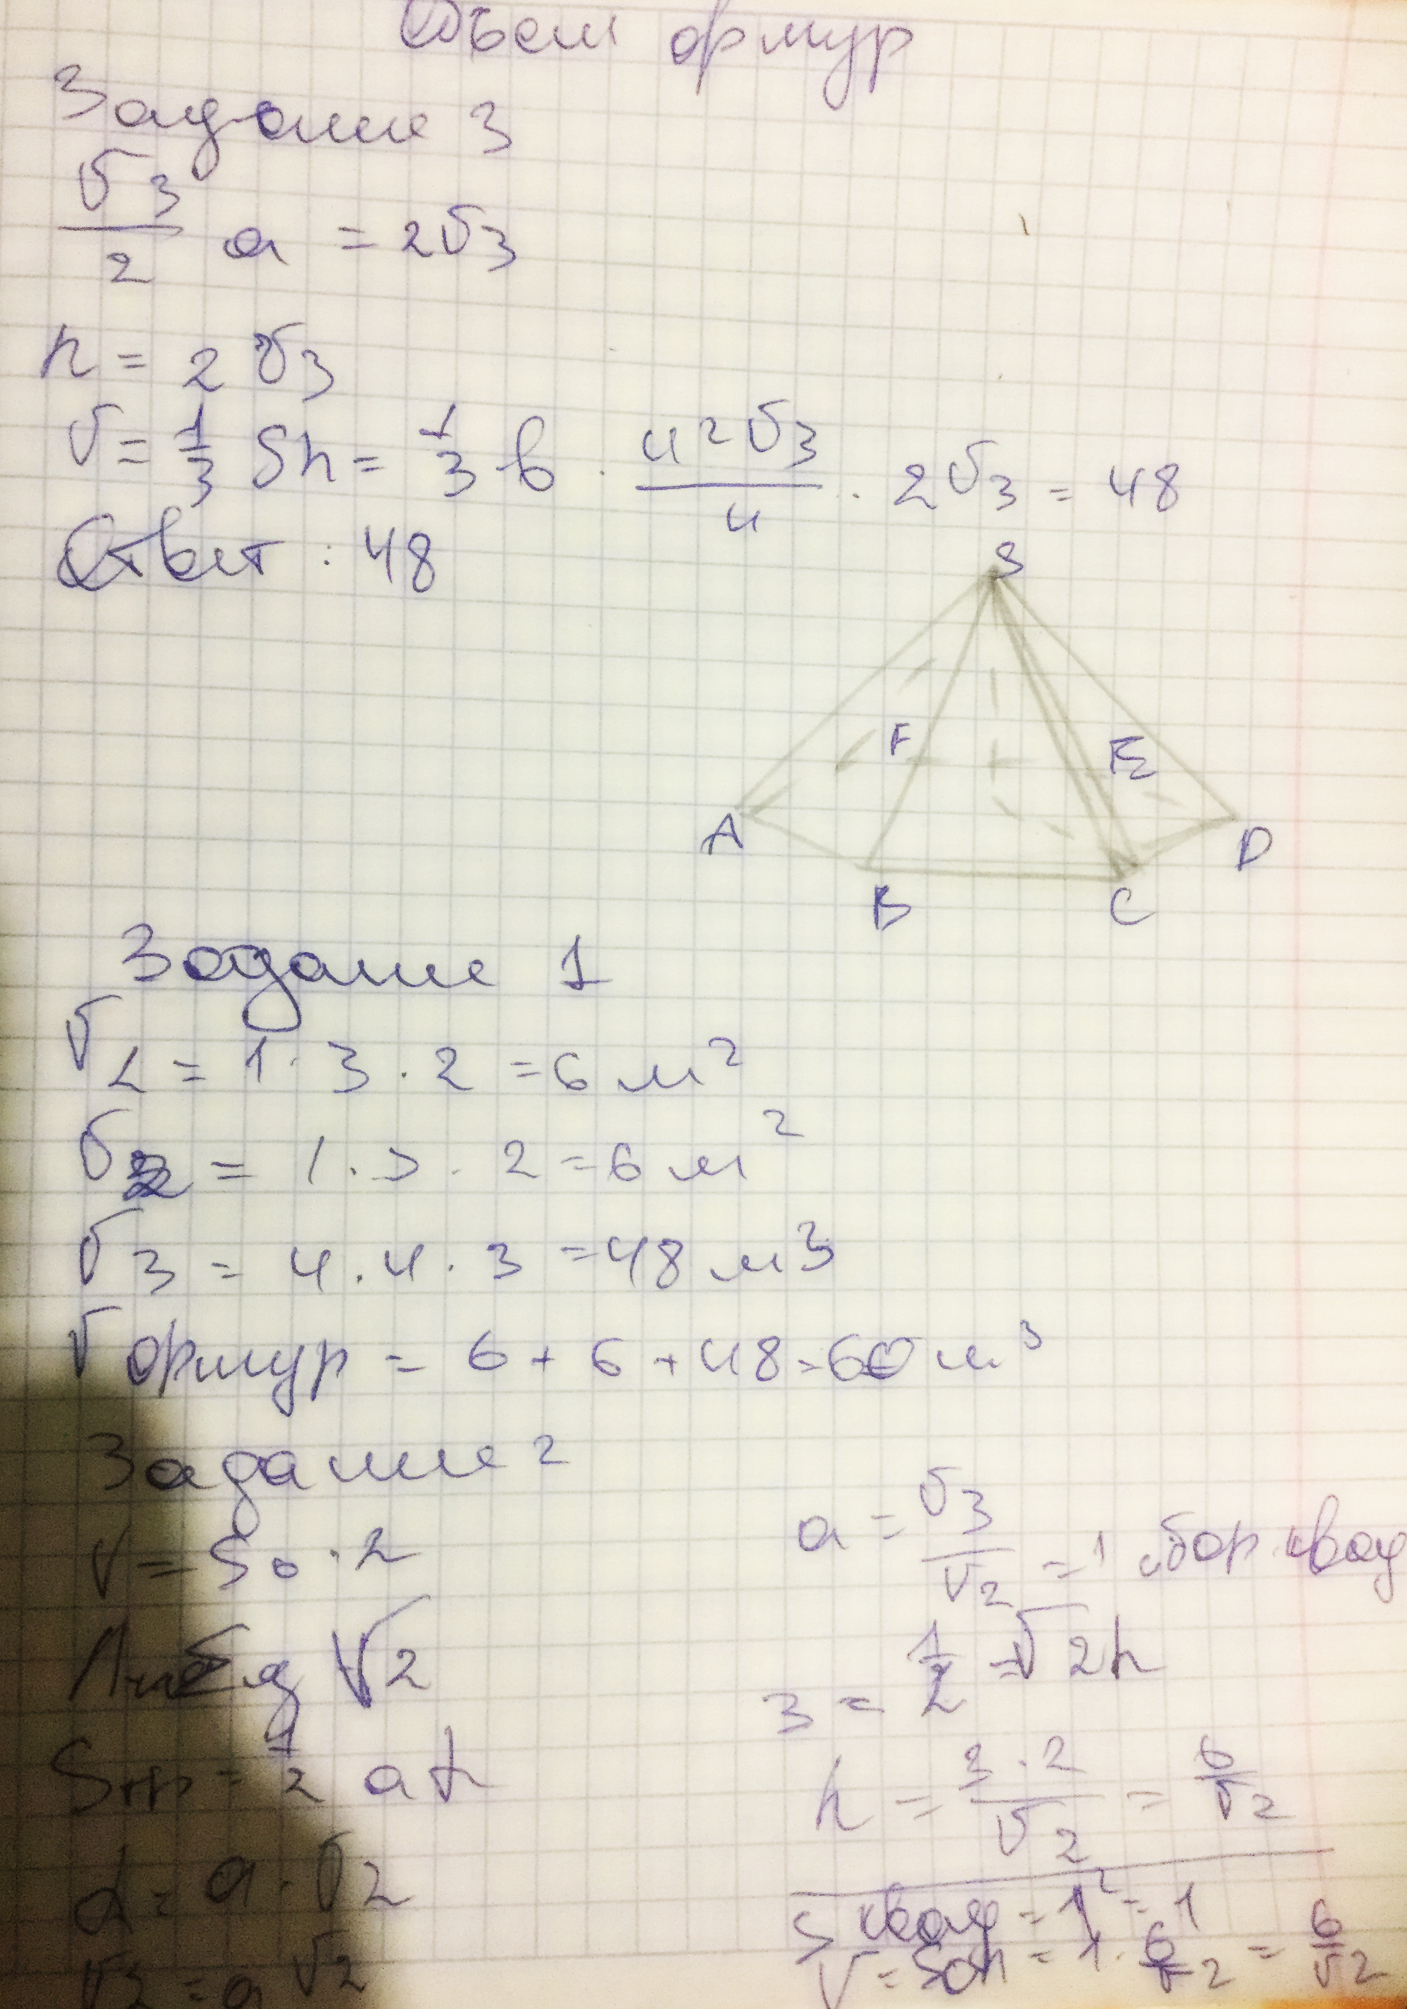 Объем фигур
Задание 3
√3/2 a = 2√3
h = 2√3
V = 1/3 Sh = 1/3 6 · 4²√3/4 · 2√3 = 48
Ответ : 48
S
F
E
A
D
B
C
Задание 1
V1 = 1 · 3 · 2 = 6 м²
V2 = 1 · 3 · 2 = 6 м²
V3 = 4 · 4 · 3 = 48 м3
V фигур = 6 + 6 + 48 = 60 м³
Задание 2
V = So · 2
√2
Sтр = 1/2 a h
d = a · √2
√2 = a √2
a = √3/√2 = 1 квад
3 = 1/2 √2h
h = 3·2/√2 = 6/√2
S квад = 1² = 1
V = Soh = 1 · 6/√2 = 6/√2